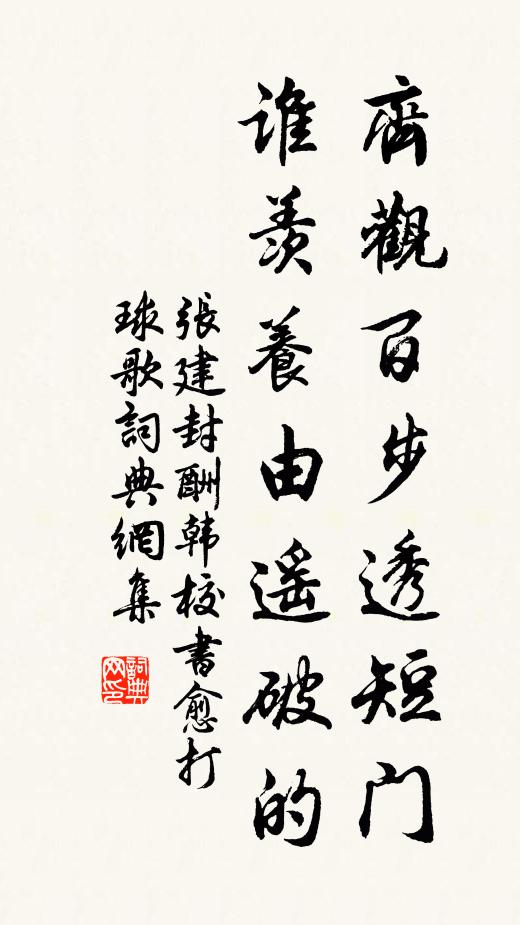 齊觀百步透短门
誰羨養由遥破的
張建封酬韩校書愈打
球歌詞典網集
詞典
网印